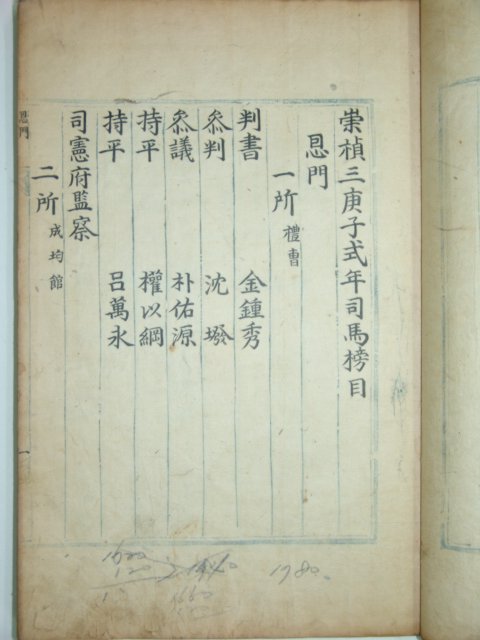 崇楨三庚子式年司馬榜目
恩門
一所 禮曹
判書 金鍾秀
叅判 沈墢
叅議 朴佑源
持平 權以綱
持平 呂萬永
司憲府監察
二所 成均館
恩門
一
1980